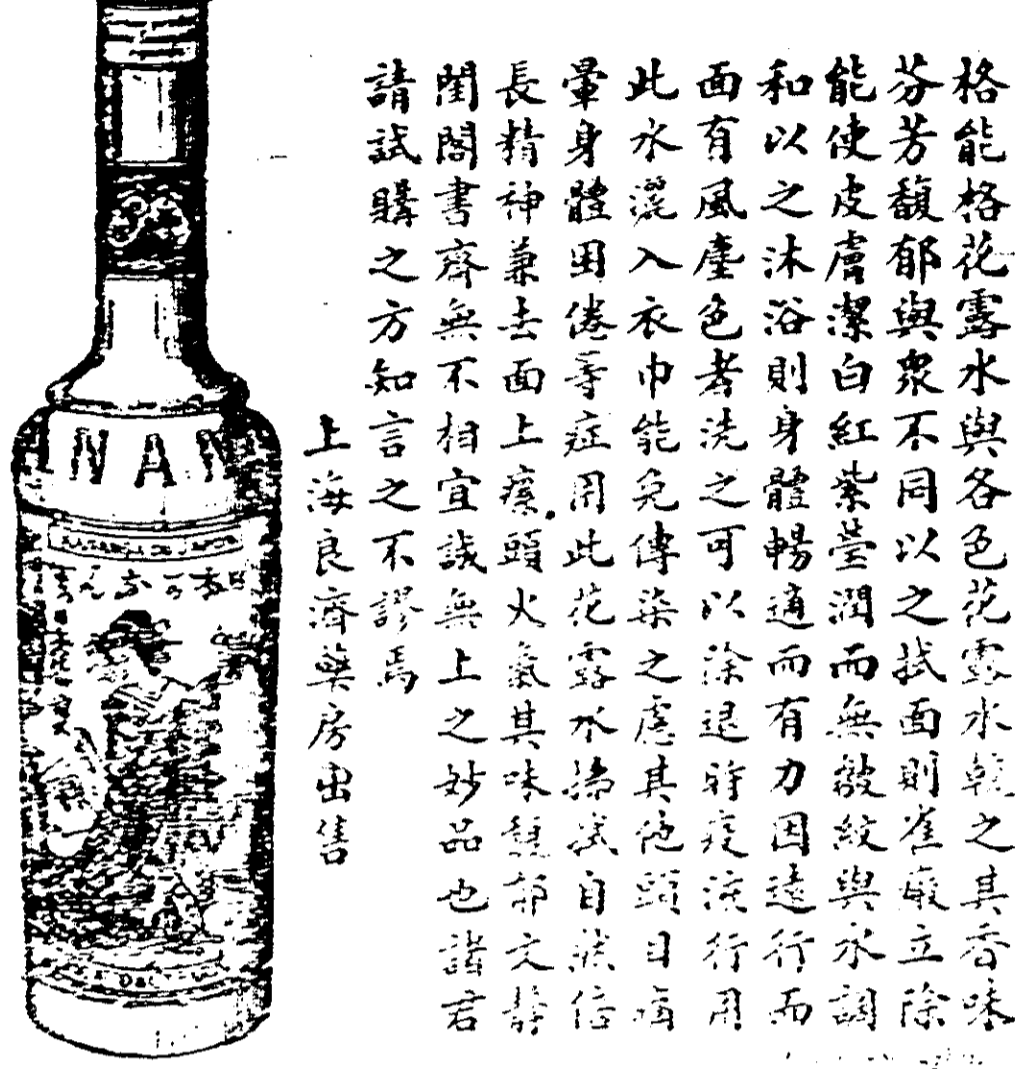 格能格花露水與各色花露水較之其香味
芬芳馥郁與眾不同以之拭面則雀癍立除
能使皮膚潔白紅紫瑩潤而無皺紋與水調
和以之沐浴則身體暢適而有力因遠行而
面有風塵色者洗之可以除退時疫流行用
此水灑入衣巾能免傳染之慮其他頭目痛
暈身體困倦等症用此花露水搽拭自然倍
長精神兼去面上瘰頭火氣其味馥郁文靜
閨閣書齋無不相宜誠無上之妙品也諸君
請試購之方知言之不謬焉
上海良濟藥房出售
NAN